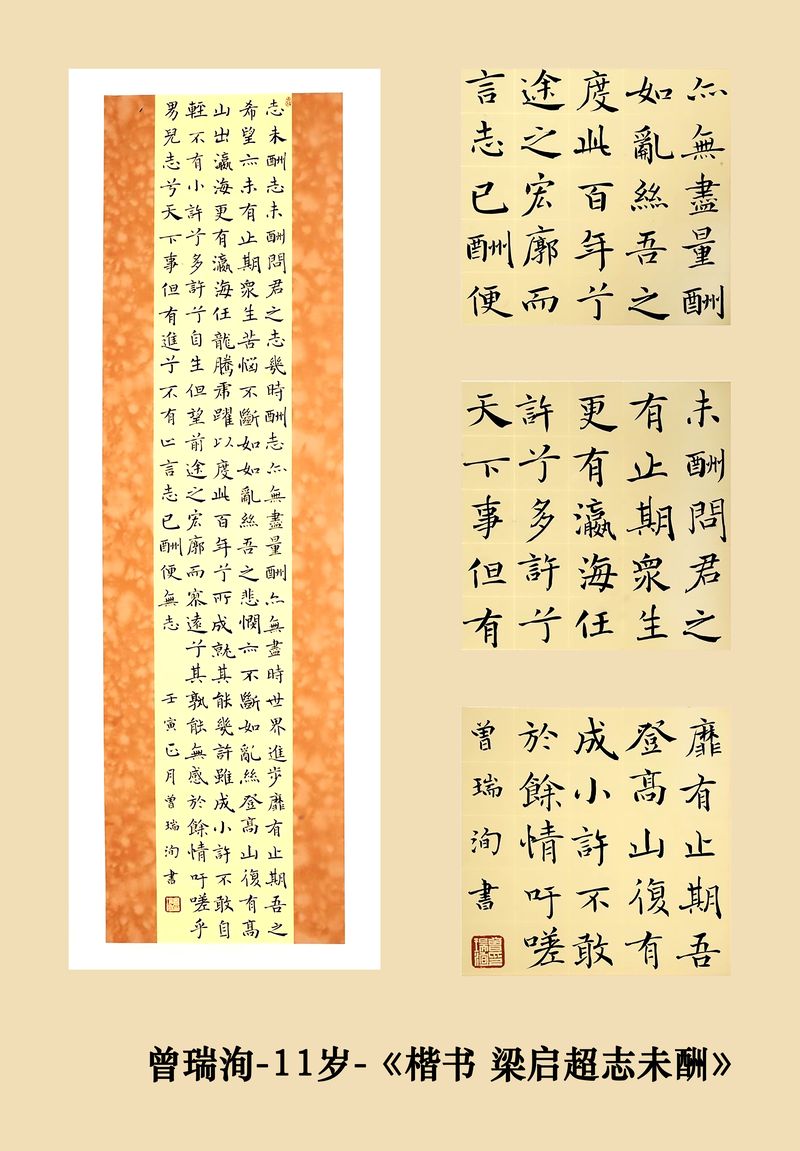 志未酬志未酬問君之志幾時酬志亦無盡量酬亦無盡時世界進步靡有止期吾之
希望亦未有止期眾生苦惱不斷如如亂絲吾之悲憫亦不斷如亂絲登高山復有高
山出瀛海更有瀛海任龍騰虎躍以度此百年兮所成就其能幾許雖成小許不敢自
輕不有小許兮多許兮自生但望前途之宏廓而寥遠兮其孰能無感於餘情吁嗟乎
男兒志兮天下事但有進兮不有止言志已酬便無志 壬寅正月曾瑞洵書
亦無盡量酬
如亂絲吾之
度此百年兮
途之宏廓而
言志已酬便
未酬問君之
有止期眾生
更有瀛海任
許兮多許兮
天下事但有
靡有止期吾
登高山復有
成小許不敢
於餘情吁嗟
曾瑞洵書
曾瑞洵-11岁-《楷书 梁启超志未酬》